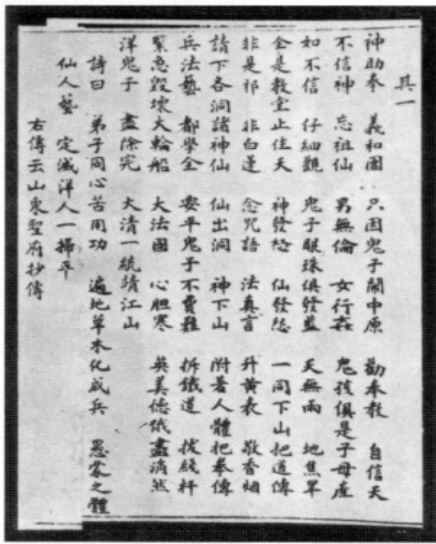 其一
神助拳 義和團 只因鬼子鬧中原 勸奉教 自信天
不信神 忘祖仙 男無倫 女行姦 鬼孩俱是子母產
如不信 仔細觀 鬼子眼珠俱發藍 天無雨 地焦旱
全是教堂止住天 神發怒 仙發怒 一同下山把道傳
非是邪 非白蓮 念咒語 法真言 升黃表 敬香烟
請下各洞諸神仙 仙出洞 神下山 附着人體把拳傳
兵法藝 都學全 要平鬼子不費難 拆鐵道 拔綫杆
緊急毀壞大輪船 大法國 心胆寒 英美德俄盡消然
洋鬼子 盡除完 大清一統靖江山
詩曰 弟子同心苦用功 遍地草木化成兵 愚蒙之體
仙人藝 定滅洋人一掃平
右傳云山東聖府抄傳